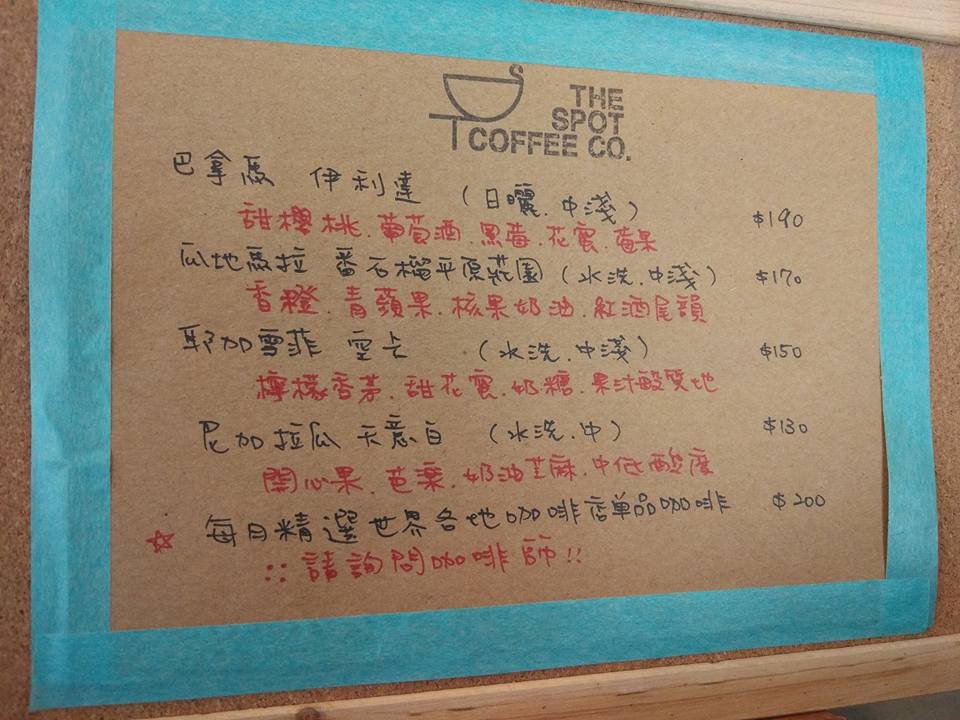 THE
SPOT
COFFEE CO.
巴拿馬 伊利達 (日曬.中淺) $190
甜櫻桃.葡萄酒.黑莓.花蜜.莓果
瓜地馬拉 番石榴平原莊園 (水洗.中淺) $170
香橙.青蘋果.核果奶油.紅酒尾韻
耶加雪菲 空卡 (水洗.中淺) $150
檸檬香茅.甜花蜜.奶糖.果汁酸質地
尼加拉瓜 天意白 (水洗.中) $130
開心果.芭樂.奶油芝麻.中低酸度
☆ 每日精選世界各地咖啡店單品咖啡 $200
:: 請詢問咖啡師!!